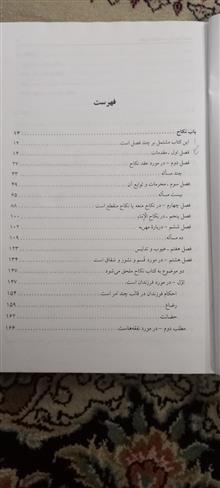 فهرست
باب نکاح ۱۳
این کتاب مشتمل بر چند فصل است ۱۴
فصل اول ـ مقدمات ۱۴
فصل دوم - در مورد عقد نکاح ۲۷
چند مسأله ۳۳
فصل سوم ـ محرمات و توابع آن ۴۹
بیست مسأله ۶۵
فصل چهارم - در نکاح متعه یا نکاح منقطع است ۸۸
فصل پنجم ـ در نکاح الإماء ۱۰۰
فصل ششم - دربارهٔ مهریه ۱۰۲
ده مسأله ۱۰۹
فصل هفتم ـ عیوب و تدلیس ۱۲۳
فصل هشتم - در مورد قسم و نشوز و شقاق است ۱۳۴
دو موضوع به کتاب نکاح ملحق می‌شود ۱۴۷
اوّل - در مورد فرزندان است ۱۴۷
احکام فرزندان در قالب چند امر است ۱۵۴
رضاع ۱۵۹
حضانت ۱۶۲
مطلب دوم - در مورد نفقه‌هاست ۱۶۶